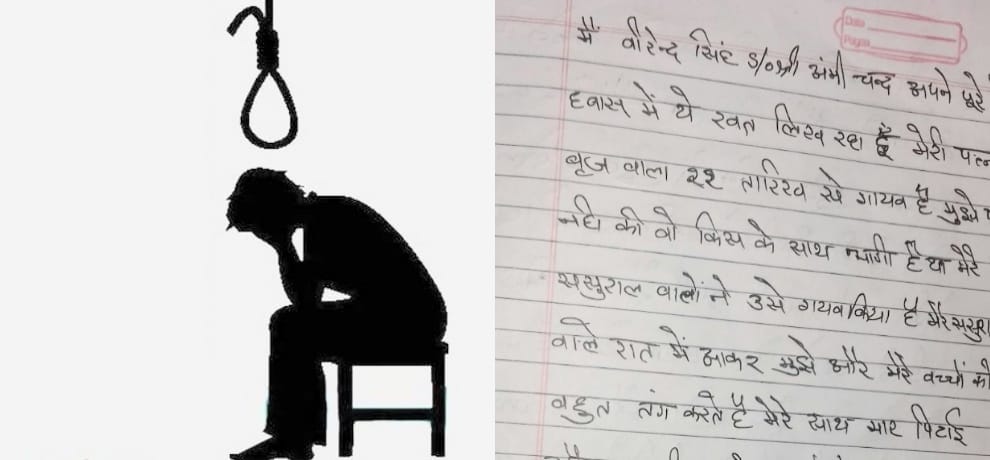 Date
Pages
मैं वीरेन्द सिंह S/o श्री अंमी चन्द अपने पुरे
हवास में ये खत लिख रहा हूँ मेरी
बृज वाला २२ तारिख से गायव है मुझे
नही की वो किस के साथ भागी है या मेरे
ससुराल वालों ने उसे गायव किया है मेरे
वाले रात में आकर मुझे और मेरे बच्चों को
वहुत तंग करते है मेरे साथ मार पिटाई